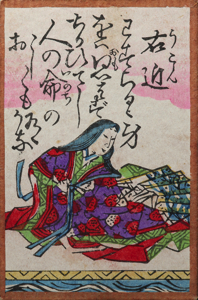 右近
うこん
わすらるゝ身
を思はず
おも
ちかひてし
人の命の
いのち
お
しくも